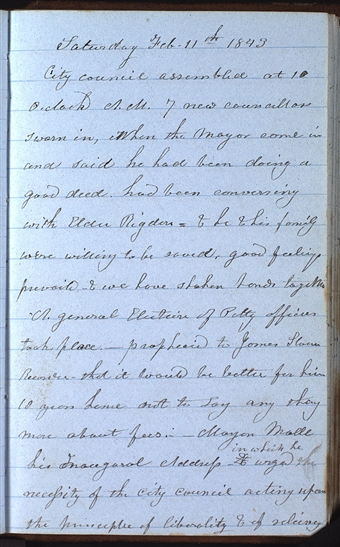 Saturday Feb. 11th 1843
City council assembled at 10
O.clock A.M. 7 new councillors
sworn in, When the Mayor come in
and said he had been doing a
good deed. had been conversing
with Elder Rigdon = & he & his family
were willing to be saved, good feelings
prevaild - & we have shaken hands together
A general Election of Petty officers
took place. — prophecied to James Sloan
Recorder - that it would be better for him
10 years hence not to say any thing
more about fees: — Mayor Made
in which he
his Inaugural Address urged the
necessity of the city council acting upon
the principle of liberality & of relieving